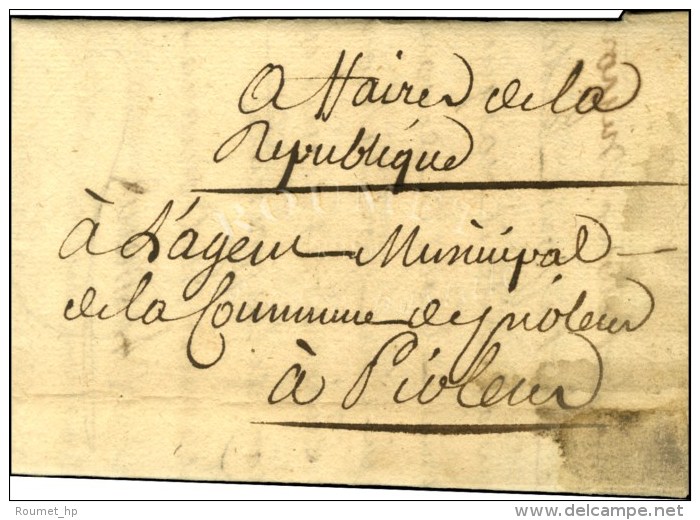 Affaires de la
Republique
à L'agent Municipal
de la Commune de piolenc
à Piolenc
ROUMET
Roumet_hp
delcampe.net